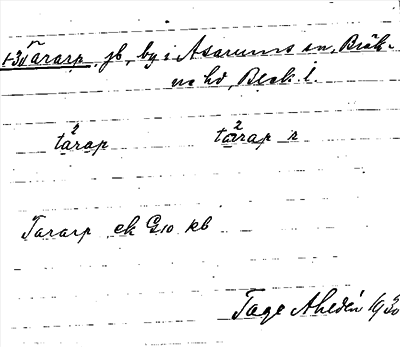 Tararp, jb, by i Asarums sn, Bräk-
ne hd, Blek. l.
2tarap 2tarap r
Tararp ek G10 kb
Tage Ahldén 1930